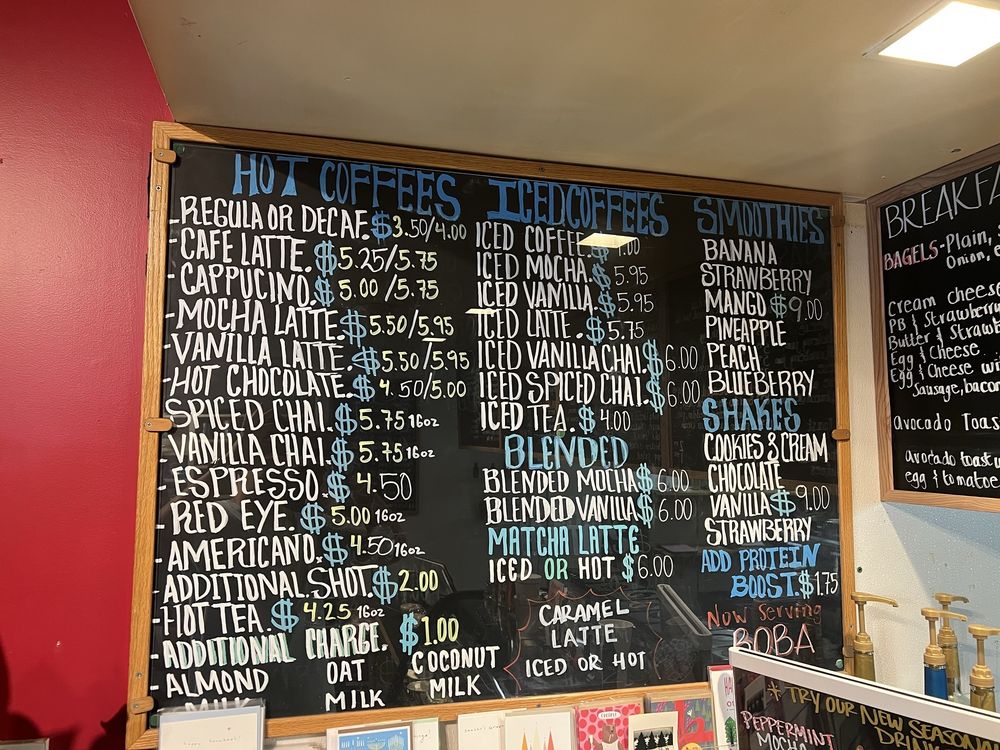 HOT COFFEES
-REGULA OR DECAF. $3.50/4.00
-CAFE LATTE. $5.25/5.75
-CAPPUCINO. $5.00/5.75
-MOCHA LATTE. $5.50/5.95
-VANILLA LATTE. $5.50/5.95
-HOT CHOCOLATE. $4.50/5.00
SPICED CHAI. $5.75 16oz
-VANILLA CHAI. $5.75 16oz
-ESPRESSO. $4.50
-RED EYE. $5.00 16oz
-AMERICANO. $4.50 16oz
ADDITIONAL SHOT. $2.00
-HOT TEA. $4.25 16oz
-ADDITIONAL CHARGE. $1.00
-ALMOND MILK
OAT MILK
COCONUT MILK
ICED COFFEES
ICED COFFEE. $
ICED MOCHA. $5.95
ICED VANILLA $5.95
ICED LATTE. $5.75
ICED VANILLA CHAI. $6.00
ICED SPICED CHAI. $6.00
ICED TEA. $4.00
BLENDED
BLENDED MOCHA $6.00
BLENDED VANILLA $6.00
MATCHA LATTE
ICED OR HOT $6.00
CARAMEL
LATTE
ICED OR HOT
SMOOTHIES
BANANA
STRAWBERRY
MANGO $9.00
PINEAPPLE
PEACH
BLUEBERRY
SHAKES
COOKIES & CREAM
CHOCOLATE
VANILLA $9.00
STRAWBERRY
ADD PROTEIN
BOOST. $1.75
Now Serving
BOBA
BREAKFA
BAGELS-Plain,
Onion,
Cream cheese
PB & Strawberr
Butter & Strawb
Egg & Cheese
Egg & Cheese wi
Sausage, bacon
Avocado Toas
avocado toast w
egg & tomatoe
* TRY OUR NEW SEASON
DRI
PEPPERMINT
MOCHA